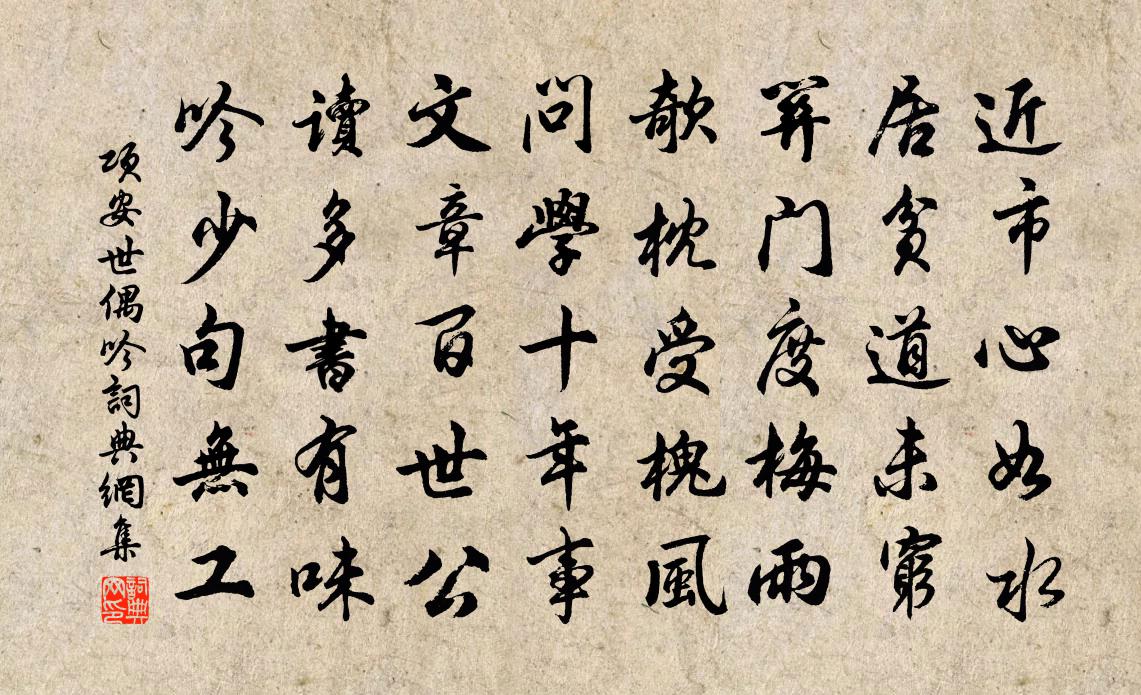 近市心如水
居貧道未窮
開門度梅雨
欹枕受槐風
問學十年事
文章百世公
讀多書有味
吟少句無工
項安世偶吟詞典網集
詞典網印